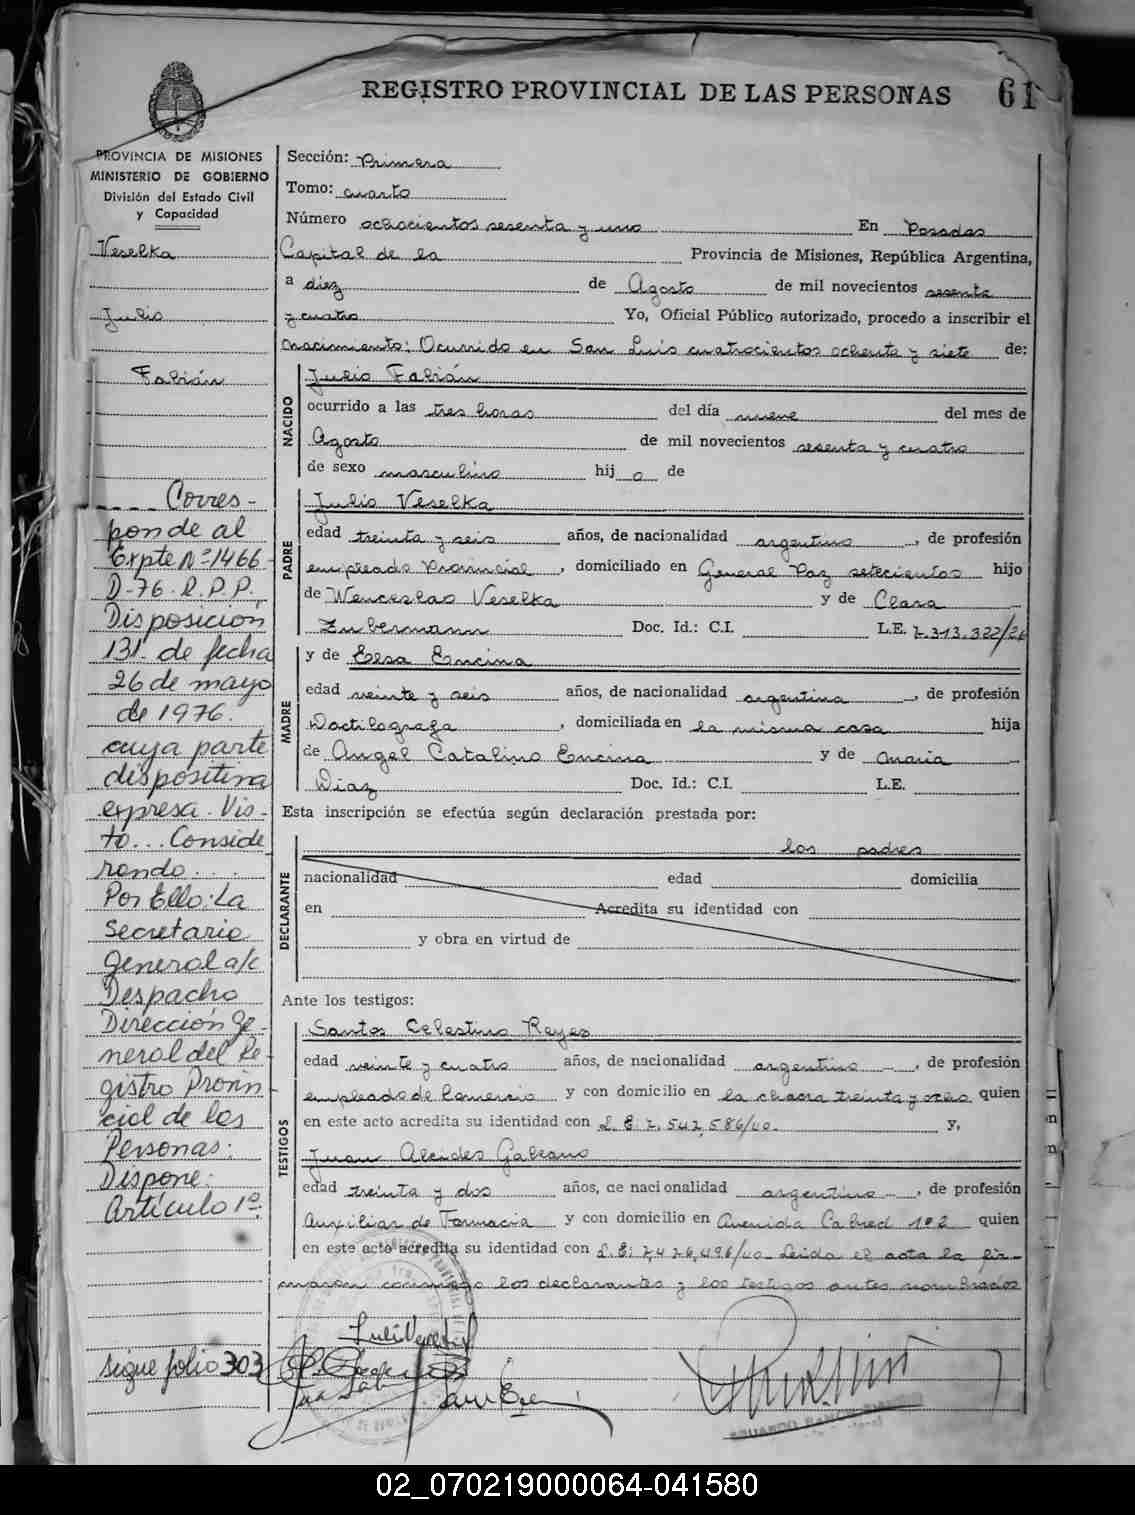 REGISTRO PROVINCIAL DE LAS PERSONAS
61
PROVINCIA DE MISIONES
MINISTERIO DE GOBIERNO
División del Estado Civil
y Capacidad
Veselka
Julio
Fabián
Corres-
ponde al
Expte Nº 1466-
D-76. R.P.P.
Disposición
131. de fecha
26 de mayo
de 1976.
cuya parte
dispositiva
expresa. Vis-
to... Conside
rando...
Por Ello: La
Secretaria
General a/c
Despacho
Dirección Ge-
neral del Re-
gistro Provin
cial de las
Personas:
Dispone:
Artículo 1º.
sigue folio 303
Sección: Primera
Tomo: cuarto
Número ochocientos sesenta y uno En Posadas
Capital de la Provincia de Misiones, República Argentina,
a diez de Agosto de mil novecientos sesenta
y cuatro Yo, Oficial Público autorizado, procedo a inscribir el
nacimiento: Ocurrido en San Luis cuatrocientos ochenta y siete de:
NACIDO
Julio Fabián
ocurrido a las tres horas del día nueve del mes de
Agosto de mil novecientos sesenta y cuatro
de sexo masculino hij o de
PADRE
Julio Veselka
edad treinta y seis años, de nacionalidad argentino, de profesión
empleado Provincial, domiciliado en General Paz setecientos hijo
de Wenceslao Veselka y de Clara
Zubermann Doc. Id.: C.I. L.E. 7.313.322/26
MADRE
y de Elsa Encina
edad veinte y seis años, de nacionalidad argentina, de profesión
Dactilografa, domiciliada en la misma casa hija
de Angel Catalino Encina y de Maria
Diaz Doc. Id.: C.I. L.E.
Esta inscripción se efectúa según declaración prestada por:
los padres
DECLARANTE
nacionalidad edad domicilia
en Acredita su identidad con
y obra en virtud de
Ante los testigos:
TESTIGOS
Santos Celestino Reyes
edad veinte y cuatro años, de nacionalidad argentino, de profesión
empleado de Comercio y con domicilio en la chacra treinta y ocho quien
en este acto acredita su identidad con L.E: 7.542.586/40. y,
Juan Alcides Galeano
edad treinta y dos años, de nacionalidad argentino, de profesión
Auxiliar de Farmacia y con domicilio en Avenida Cabred 192 quien
en este acto acredita su identidad con L.E: 7,426,496/40. Leida el acta la fir-
maron conmigo los declarantes y los testigos antes nombrados
02_070219000064-041580